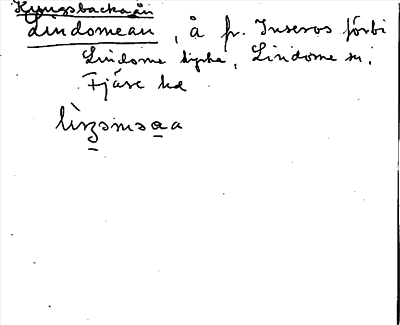 Kungsbackaån
Lindomeån, å fr. Inseros förbi
Lindome kyrka, Lindome sn,
Fjäre hd